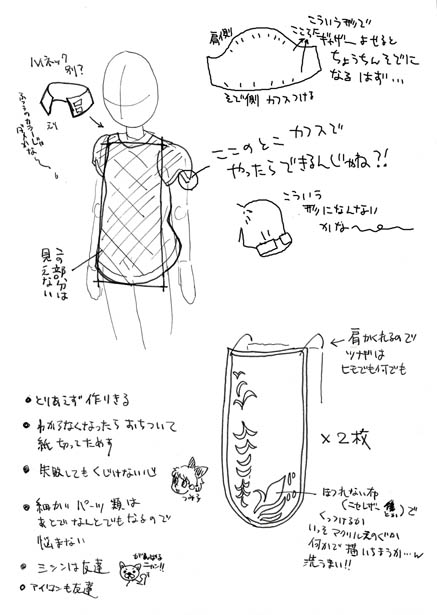 肩側
こういう形で
ギャザーよせると
ちょうちんそでに
なるはず…
そで側 カフスつける
ハイネック
別?
ここのとこ カフスで
やったらできるんじゃね?!
こういう
形になんない
かな〜
この部分は
見えない
肩がくれるので
ツナギは
ヒモでも何でも
×2枚
ほつれない布
で
くっつけるか
いっそアクリルえのぐか
何かで描いちまうか…w
洗うまい!!
とりあえず作りきる
わからなくなったらおちついて
紙切ってためす
失敗してもくじけない心
細かいパーツ類は
あとでなんとでもなるので
悩まない
ミシンは友達
アイロンも友達
がんばれる
ニャン!!